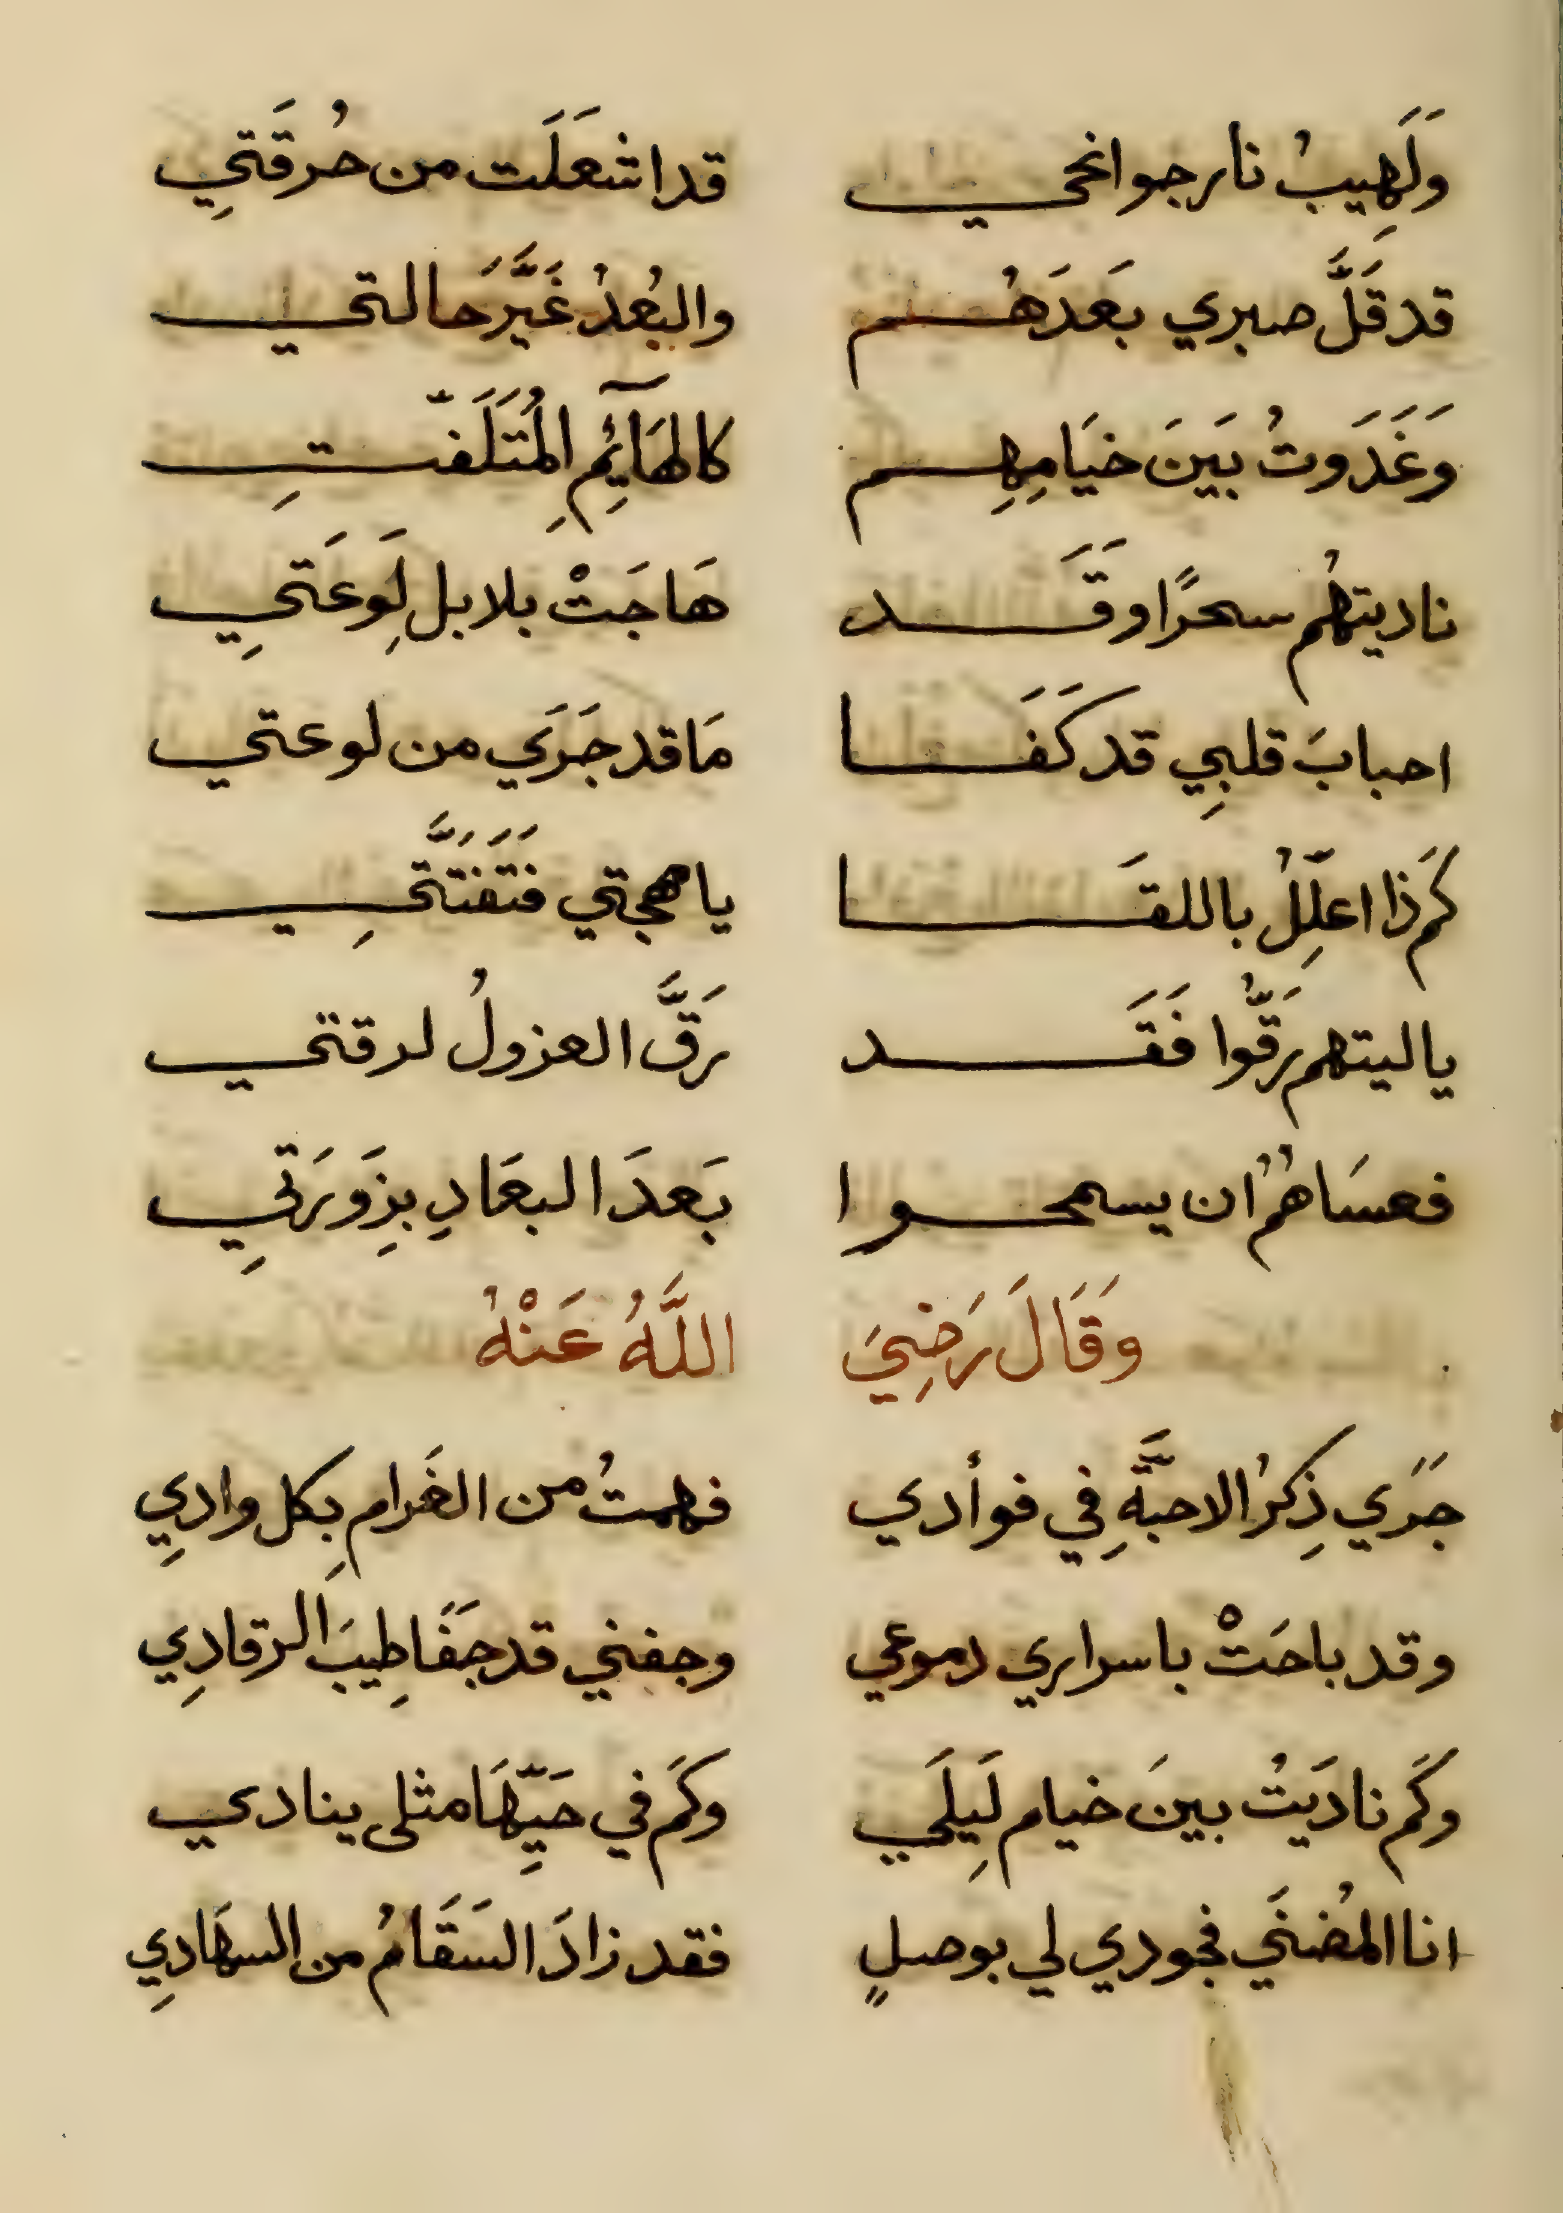 وَلَهِيبُ نار جوانحي قد اشعَلَت من حُرقَتِي
قد قَلَّ صبري بَعَدَهُم والبُعدُ غَيَّرَ حالتي
وَغَدَوتُ بَينَ خيَامِهِم كالهَآئِمِ المُتَلَفّتِ
ناديتهُم سحرًا وقَد هَاجَتْ بلابل لَوِعَتِي
احبابَ قلبِي قد كَفَا مَا قد جَرَي من لوعتي
كَم ذا اعلِّلُ باللقَا يا مهجتي فتَفَتَّتِي
يا ليتهم رَقُّوا فَقَد رَقَّ العزولُ لرقتي
فعسَاهُمُ ان يسمحوا بَعدَ البعَادِ بِزَورَتِي
وَقَالَ رَضِيَ اللَّهُ عَنْهُ
جَرَي ذِكرُ الاحبَّةِ فِي فوأدي فهمتُ من الغَرام بِكل وادِي
وقد باحَتْ باسراري دموعي وجفني قد جَفَا طِيبَ الرقادِي
وكَم نادَيتُ بينَ خيام لَيلَي وكَم في حَيِّهَا مثلى ينادي
انا المُضنَي فجودي لي بوصلٍ فقد زادَ السَقَامُ من السهَادِي